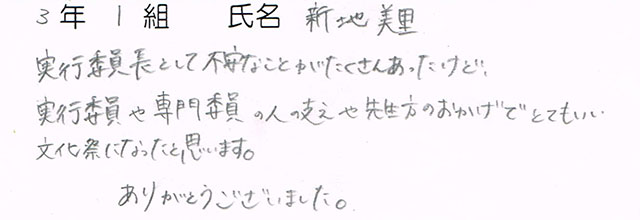 3年 1組 氏名 新地美里
実行委員長として不安なことがたくさんあったけど、
実行委員や専門委員の人の支えや先生方のおかげでとてもいい
文化祭になったと思います。
ありがとうございました。